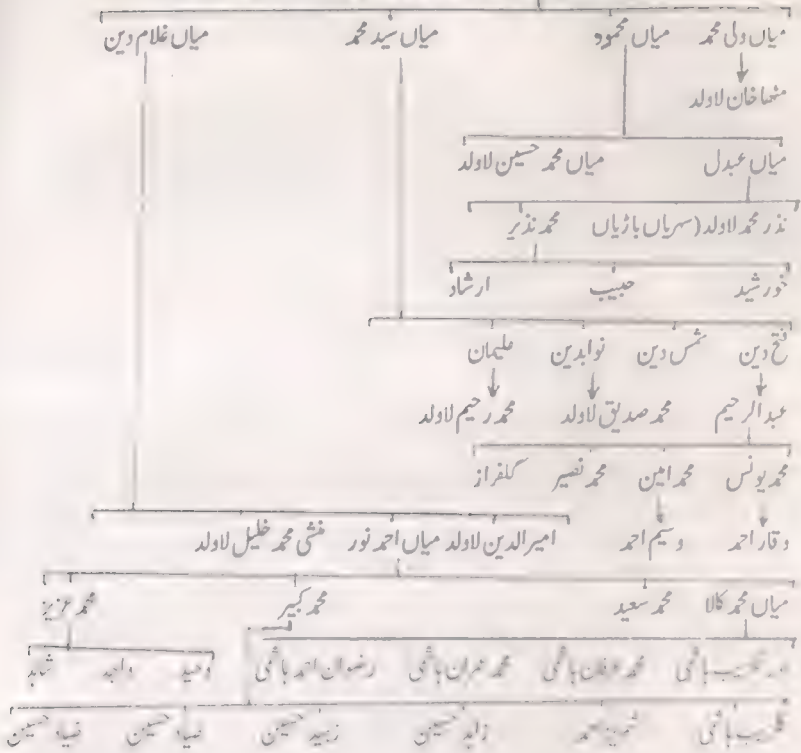 میاں ولی محمد میاں محمود میاں سید محمد میاں غلام دین
مٹھا خان لاولد
میاں عبدل میاں محمد حسین لاولد
نذر محمد لاولد (سریاں باڑیاں محمد نذیر
خورشید حبیب ارشاد
فتح دین شمس دین نوابدین علیمان
عبدالرحیم محمد صدیق لاولد محمد رحیم لاولد
محمد یونس محمد امین محمد نصیر گلفراز
وقار احمد وسیم احمد امیر الدین لاولد میاں احمد نور منشی محمد خلیل لاولد
میاں محمد کالا محمد سعید محمد کبیر محمد عزیز
ہاشمی محمد عرفان ہاشمی محمد عمران ہاشمی رضوان احمد ہاشمی وحید واجد شاہد
ہاشمی زاہد حسین زبید حسین ضیاء حسین ضیاء حسین